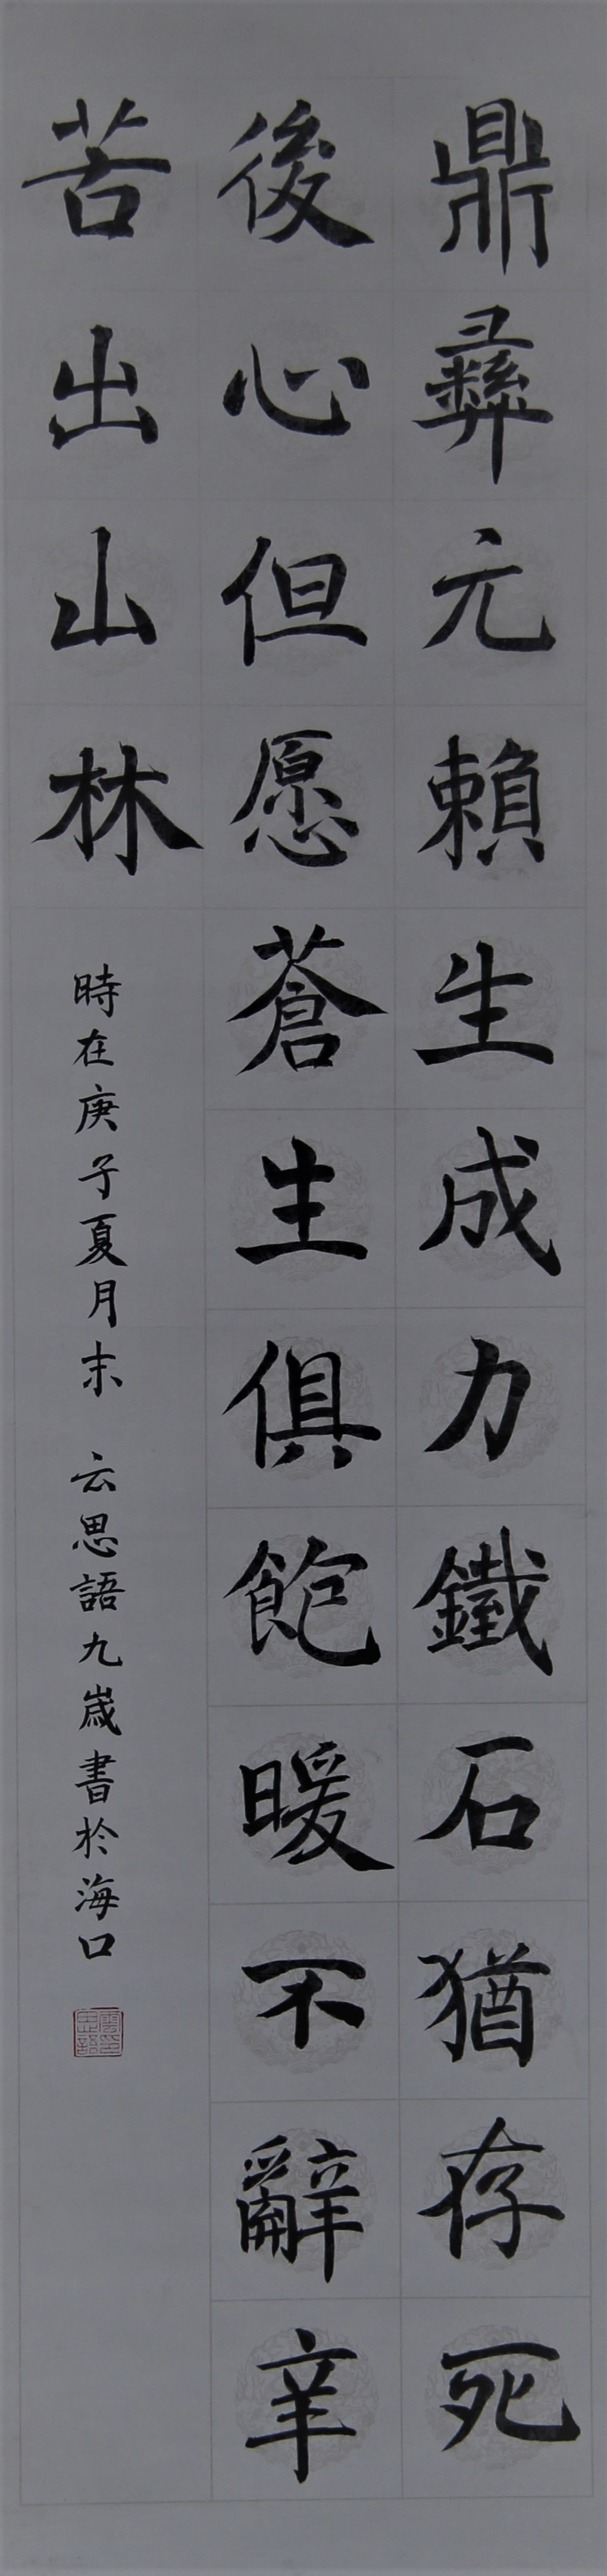 鼎彝元賴生成力鐵石猶存死
後心但愿蒼生俱飽暖不辭辛
苦出山林
時在庚子夏月末 云思語九歲書於海口